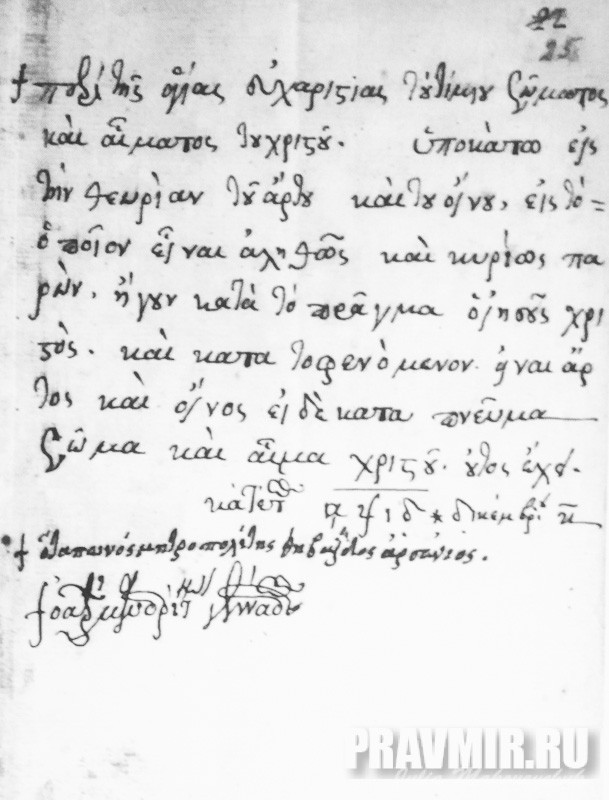 22
25
† περὶ τῆς ἁγίας εὐχαριστίας τοῦ τιμίου σώματος
καὶ αἵματος τοῦ χριστοῦ. ὑποκάτω εἰς
τὴν θεωρίαν τοῦ ἄρτου καὶ τοῦ οἴνου, εἰς τὸ =
ὁποῖον εἶναι ἀληθῶς καὶ κυρίως πα
ρὼν, ἤγουν κατὰ τὸ πρᾶγμα ὁ ἰησοῦς χρι
στὸς. καὶ κατα το φενόμενον ῃναι ἄρ
τος καὶ οἴνος εἰ δὲ κατα πνεῦμα
σῶμα καὶ αἷμα χριστοῦ. οὕτος ἐχει.
κατὰ ἔτ αψιδ * δικεμβρίου κ
† ὁ ταπεινός μητροπολίτης θηβαΐδος ἀρσένιος.
PRAVMIR.RU